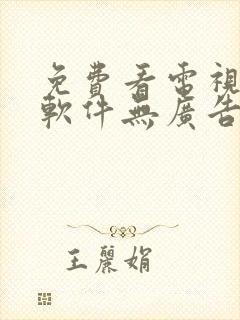 免費看電視
軟件無廣告
王麗娟